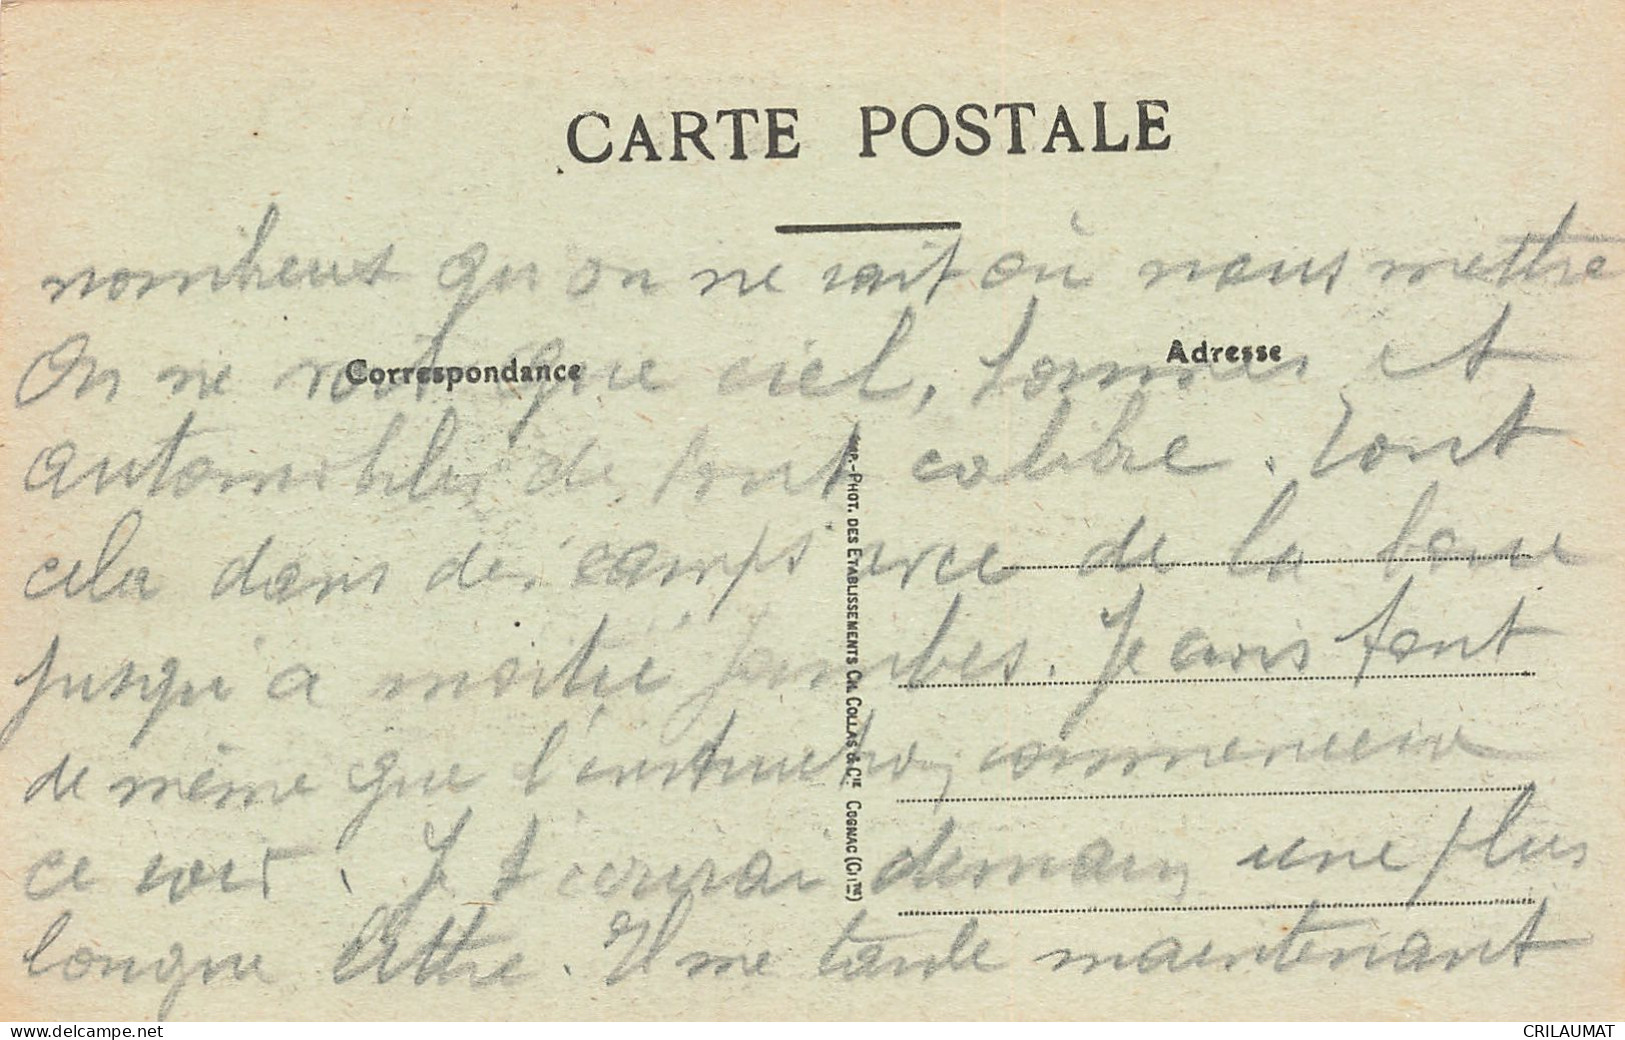 CARTE POSTALE
nombreux qu'on ne sait où nous mettre
On ne voit que ciel, tonnes et
Correspondance
Adresse
automobiles de tout calibre. Tout
cela dans des camps avec de la boue
jusqu'à moitié jambes. Je crois tout
de même que l'instruction commencera
ce soir. Je t'écrirai demain une plus
longue lettre. Il me tarde maintenant
IMP.-PHOT. DES ETABLISSEMENTS CH. COLLAS & CIE COGNAC (CHTE)
www.delcampe.net
CRILAUMAT